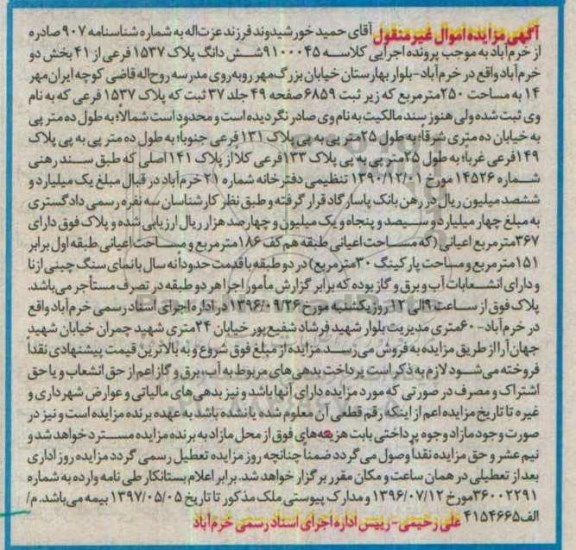 آگهی مزایده اموال غیرمنقول آقای حمید خورشیدوند فرزند عزت‌اله به شماره شناسنامه ۹۰۷ صادره
از خرم‌آباد به موجب پرونده اجرایی کلاسه ۹۱۰۰۰۴۵ شش دانگ پلاک ۱۵۳۷ فرعی از ۴۱ بخش دو
خرم‌آباد واقع در خرم‌آباد - بلوار بهارستان خیابان بزرگ مهر روبه‌روی مدرسه روح‌اله قاضی کوچه ایران مهر
۱۴ به مساحت ۲۵۰ مترمربع که زیر ثبت ۶۸۵۹ صفحه ۴۹ جلد ۳۷ ثبت که پلاک ۱۵۳۷ فرعی که به نام
وی ثبت شده ولی هنوز سند مالکیت به نام وی صادر نگردیده است و محدود است شمالا؛ به طول ده متر پی
به خیابان ده متری شرقا؛ به طول ۲۵ متر پی به پی پلاک ۱۳۱ فرعی جنوبا؛ به طول ده متر پی به پی پلاک
۱۴۹ فرعی غربا؛ به طول ۲۵ متر پی به پی پلاک ۱۳۳ فرعی کلا از پلاک ۱۴۱ اصلی که طبق سند رهنی
شماره ۱۴۵۲۶ مورخ ۱۳۹۰/۱۲/۰۱ تنظیمی دفترخانه شماره ۲۱ خرم‌آباد در قبال مبلغ یک میلیارد و
ششصد میلیون ریال در رهن بانک پاسارگاد قرار گرفته و طبق نظر کارشناسان سه نفره رسمی دادگستری
به مبلغ چهار میلیارد و سیصد و پنجاه و یک میلیون و چهارصد هزار ریال ارزیابی شده و پلاک فوق دارای
۳۶۷ مترمربع اعیانی (که مساحت اعیانی طبقه هم کف ۱۸۶ مترمربع و مساحت اعیانی طبقه اول برابر
۱۵۱ مترمربع و مساحت پارکینگ ۳۰ مترمربع) در دو طبقه با قدمت حدودا نه سال با نمای سنگ چینی ازنا
و دارای انشعابات آب و برق و گاز بوده که برابر گزارش مأمور اجرا هر دو طبقه در تصرف مستأجر می‌باشد.
پلاک فوق از ساعت ۹ الی ۱۲ روز یکشنبه مورخ ۱۳۹۶/۰۹/۲۶ در اداره اجرای اسناد رسمی خرم‌آباد واقع
در خرم‌آباد - ۶۰ متری مدیریت بلوار شهید فرشاد شفیع‌پور خیابان ۲۴ متری شهید چمران خیابان شهید
جهان آرا از طریق مزایده به فروش می‌رسد. مزایده از مبلغ فوق شروع و به بالاترین قیمت پیشنهادی نقدا
فروخته می‌شود لازم به ذکر است پرداخت بدهی‌های مربوط به آب، برق و گاز اعم از حق انشعاب و یا حق
اشتراک و مصرف در صورتی که مورد مزایده دارای آنها باشد و نیز بدهی‌های مالیاتی و عوارض شهرداری و
غیره تا تاریخ مزایده اعم از اینکه رقم قطعی آن معلوم شده یا نشده باشد به عهده برنده مزایده است و نیز در
صورت وجود مازاد وجوه پرداختی بابت هزینه‌های فوق از محل مازاد به برنده مزایده مسترد خواهد شد و
نیم عشر و حق مزایده نقدا وصول می‌گردد ضمنا چنانچه روز مزایده تعطیل رسمی گردد مزایده روز اداری
بعد از تعطیلی در همان ساعت و مکان مقرر برگزار خواهد شد. برابر اعلام بستانکار طی نامه وارده به شماره
۳۶۰۰۲۲۹۱ مورخ ۱۳۹۶/۰۷/۱۲ و مدارک پیوستی ملک مذکور تا تاریخ ۱۳۹۷/۰۵/۰۵ بیمه می‌باشد. م/
الف ۴۱۵۴۶۶۵ علی رحیمی - رییس اداره اجرای اسناد رسمی خرم‌آباد